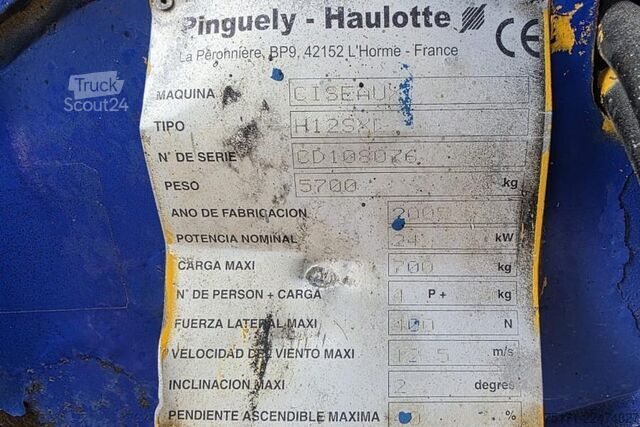 Pinguely - Haulotte
La Péronnière, BP9, 42152 L'Horme - France
CE
Truck
Scout24
MAQUINA CISEAU
TIPO
N° DE SERIE CD108076
PESO 5700 kg
ANO DE FABRICACION
POTENCIA NOMINAL kW
CARGA MAXI 700 kg
N° DE PERSON + CARGA 4 P + kg
FUERZA LATERAL MAXI 400 N
VELOCIDAD DEL VIENTO MAXI 12.5 m/s
INCLINACION MAXI 2 degres
PENDIENTE ASCENDIBLE MAXIMA %